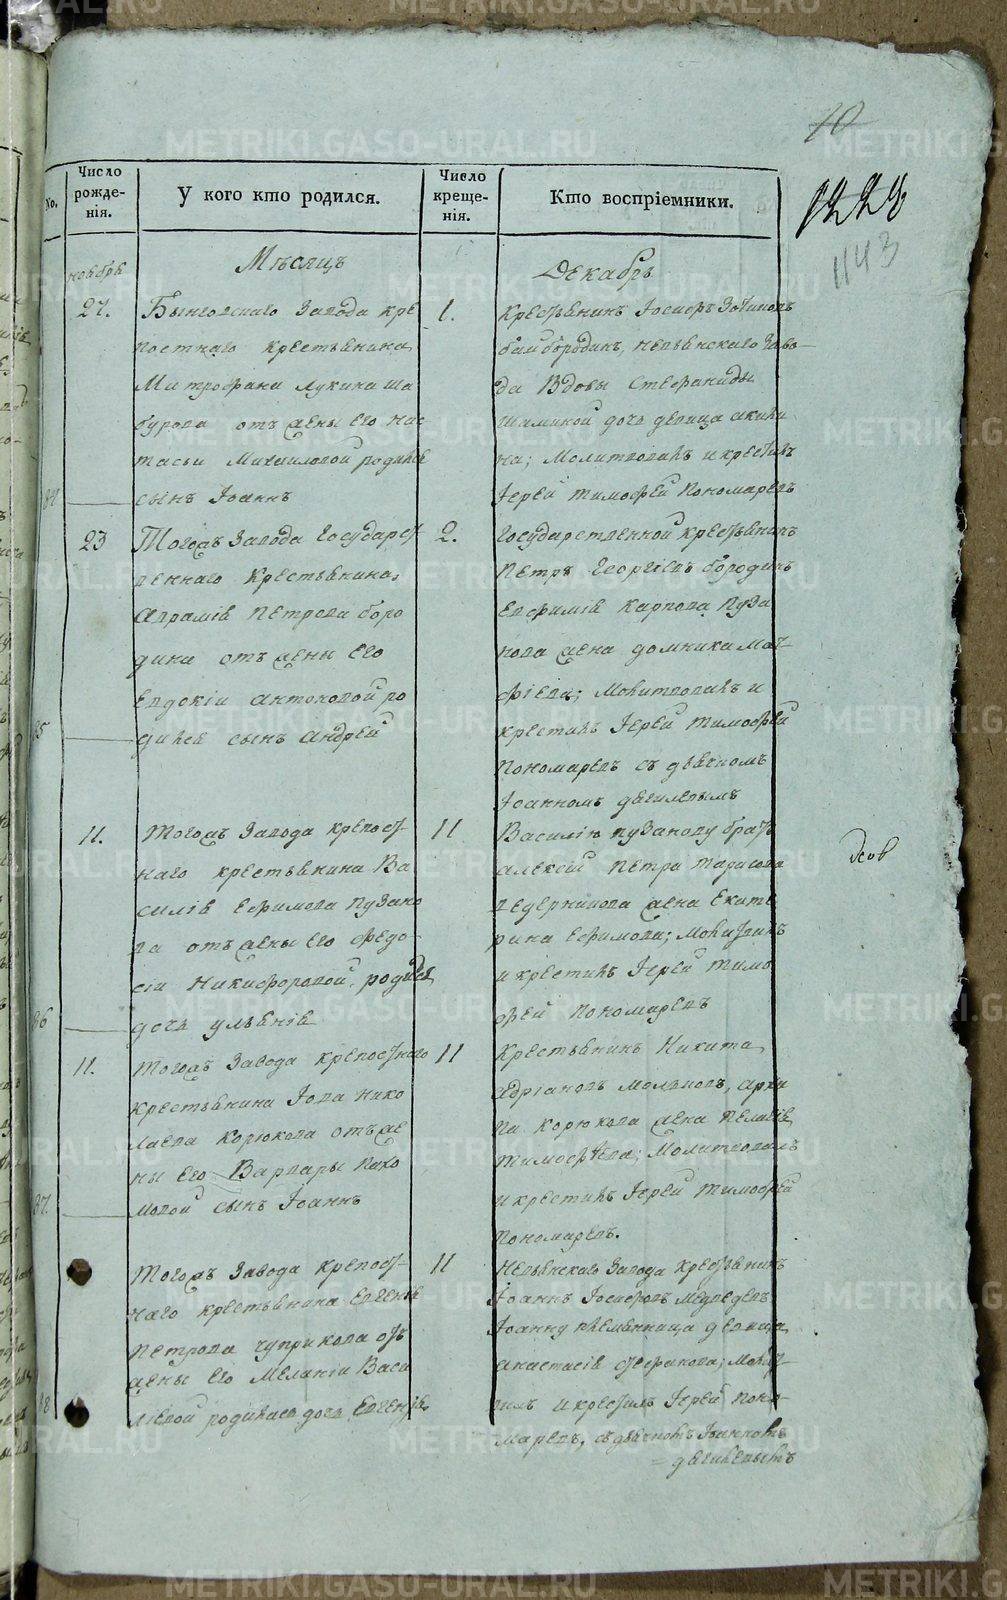 10
1228
1143
No. | Число рожденія. | У кого кто родился. | Число крещенія. | Кто воспріемники.
ноября Мѣсяцъ Декабрь
27. Бынговскаго Завода кре
постнаго крестьянина
Митрофана Лукина Ша
бурова отъ жены его Нас
тасьи Михайловой родился
84 сынъ Іоаннъ
1. Крестьянинъ Іосифъ Зотиковъ
Байбородинъ, Невьянскаго Заво-
да Вдовы Стефаниды
Шаминой дочь девица Акили
на; Молитвовалъ и крестилъ
Іерей Тимофей Пономаревъ
23 Тогожъ Завода Государст
веннаго крестьянина
Авраамія Петрова Боро
дина отъ жены его
Евдокіи Антоновой ро
85 дился сынъ Андрей
2. Государственной крестьянинъ
Петръ Георгіевъ Бородинъ
Евфимія Карпова Пуза
нова жена Домника Мат-
фіева; Молитвовалъ и
крестилъ Іерей Тимофей
Пономаревъ съ дьячкомъ
Іоанномъ Дягилевымъ
11. Тогожъ Завода крепост-
наго крестьянина Ва
силія Ефимова Пузано
ва отъ жены его Федо-
сіи Никифоровой, родилась
86 дочь Ульянія
11 Василію Пузанову братъ
Алексей Петра Тарасова
Ведерникова жена Екате
рина Ефимова; Молитвилъ
и крестилъ Іерей Тимо
фей Пономаревъ
11. Тогожъ Завода крепостнаго
крестьянина Іова Нико
лаева Корюкова отъ же
ны его Варвары Пахо
87. мовой сынъ Іоаннъ
11 Крестьянинъ Никита
Адріановъ Мольковъ, Архи
па Корюкова жена Пелагія
Тимофѣева; Молитвовалъ
и крестилъ Іерей Тимофей
Пономаревъ.
Тогожъ Завода крепост-
наго крестьянина Евгенія
Петрова Чуприкова отъ
жены его Меланіи Васи
88 ліевой родилась дочь Евгенія
11 Невьянскаго Завода крестьянинъ
Іоаннъ Іосифовъ Медведевъ
Іоанну племянница девица
Анастасія Стефанова; Молит-
вилъ и крестилъ Іерей Поно-
маревъ, съ дьячкомъ Іоанномъ
= Дягилевымъ
METRIKI.GASO-URAL.RU